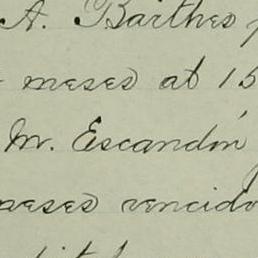 A. Barthes
meses at 15
M. Escandón
meses vencido